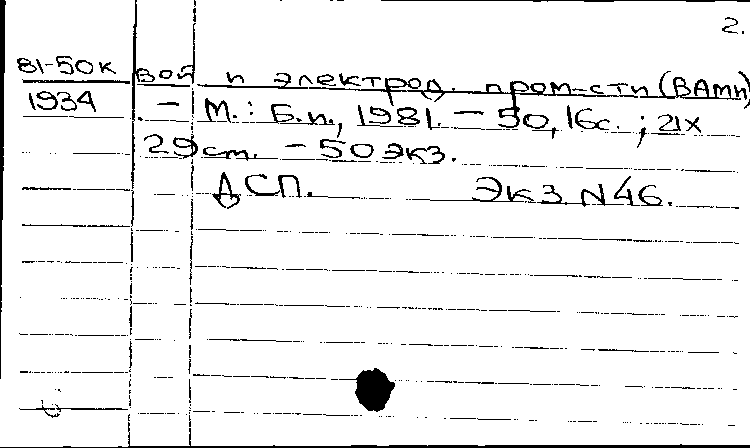 2.
81-50к вой и электрод. пром-сти (ВАМИ)
1934 . - М.: Б.и., 1981. - 50, 16с. ; 21х
29 см. - 50 экз.
ДСП. Экз. N46.